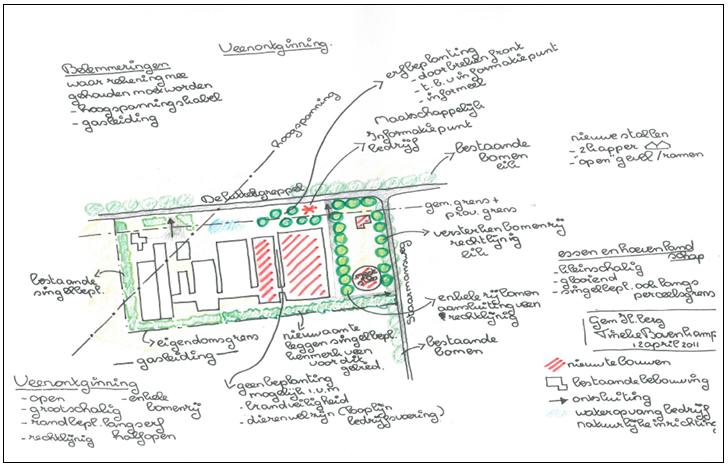 Veenontginning
Belemmeringen
waar rekening mee
gehouden moet worden
- hoogspanningskabel
- gasleiding
hoogspanning
erfbeplanting
- doorbreken front
- t.b.v informatiepunt
- informeel
Maatschappelijk
Informatiepunt
bedrijf
bestaande
bomen
eik
nieuwe stallen
- 2 kapper
- "open" gevel/ramen
gem. grens +
prov. grens
versterken bomenrij
rechtlijnig
eik
essen en hoevenland
schap
- kleinschalig
- glooiend
- singelbepl. ook langs
perceelsgrens
bestaande
singelbepl.
enkele rij bomen
aansluiting veen
rechtlijnig
bestaande
bomen
eigendomsgrens
gasleiding
nieuw aan te
leggen singelbepl.
kenmerk veen
voor dit
gebied.
geen beplanting
mogelijk i.v.m
- brandveiligheid
- dierenwelzijn (looplijn
bedrijfsvoering)
Veenontginning
- open - enkele
- grootschalig bomenrij
- randbepl. langs erf
- rechtlijnig halfopen
12 april 2011
nieuw te bouwen
bestaande bebouwing
ontsluiting
wateropvang bedrijf
natuurlijke inrichting